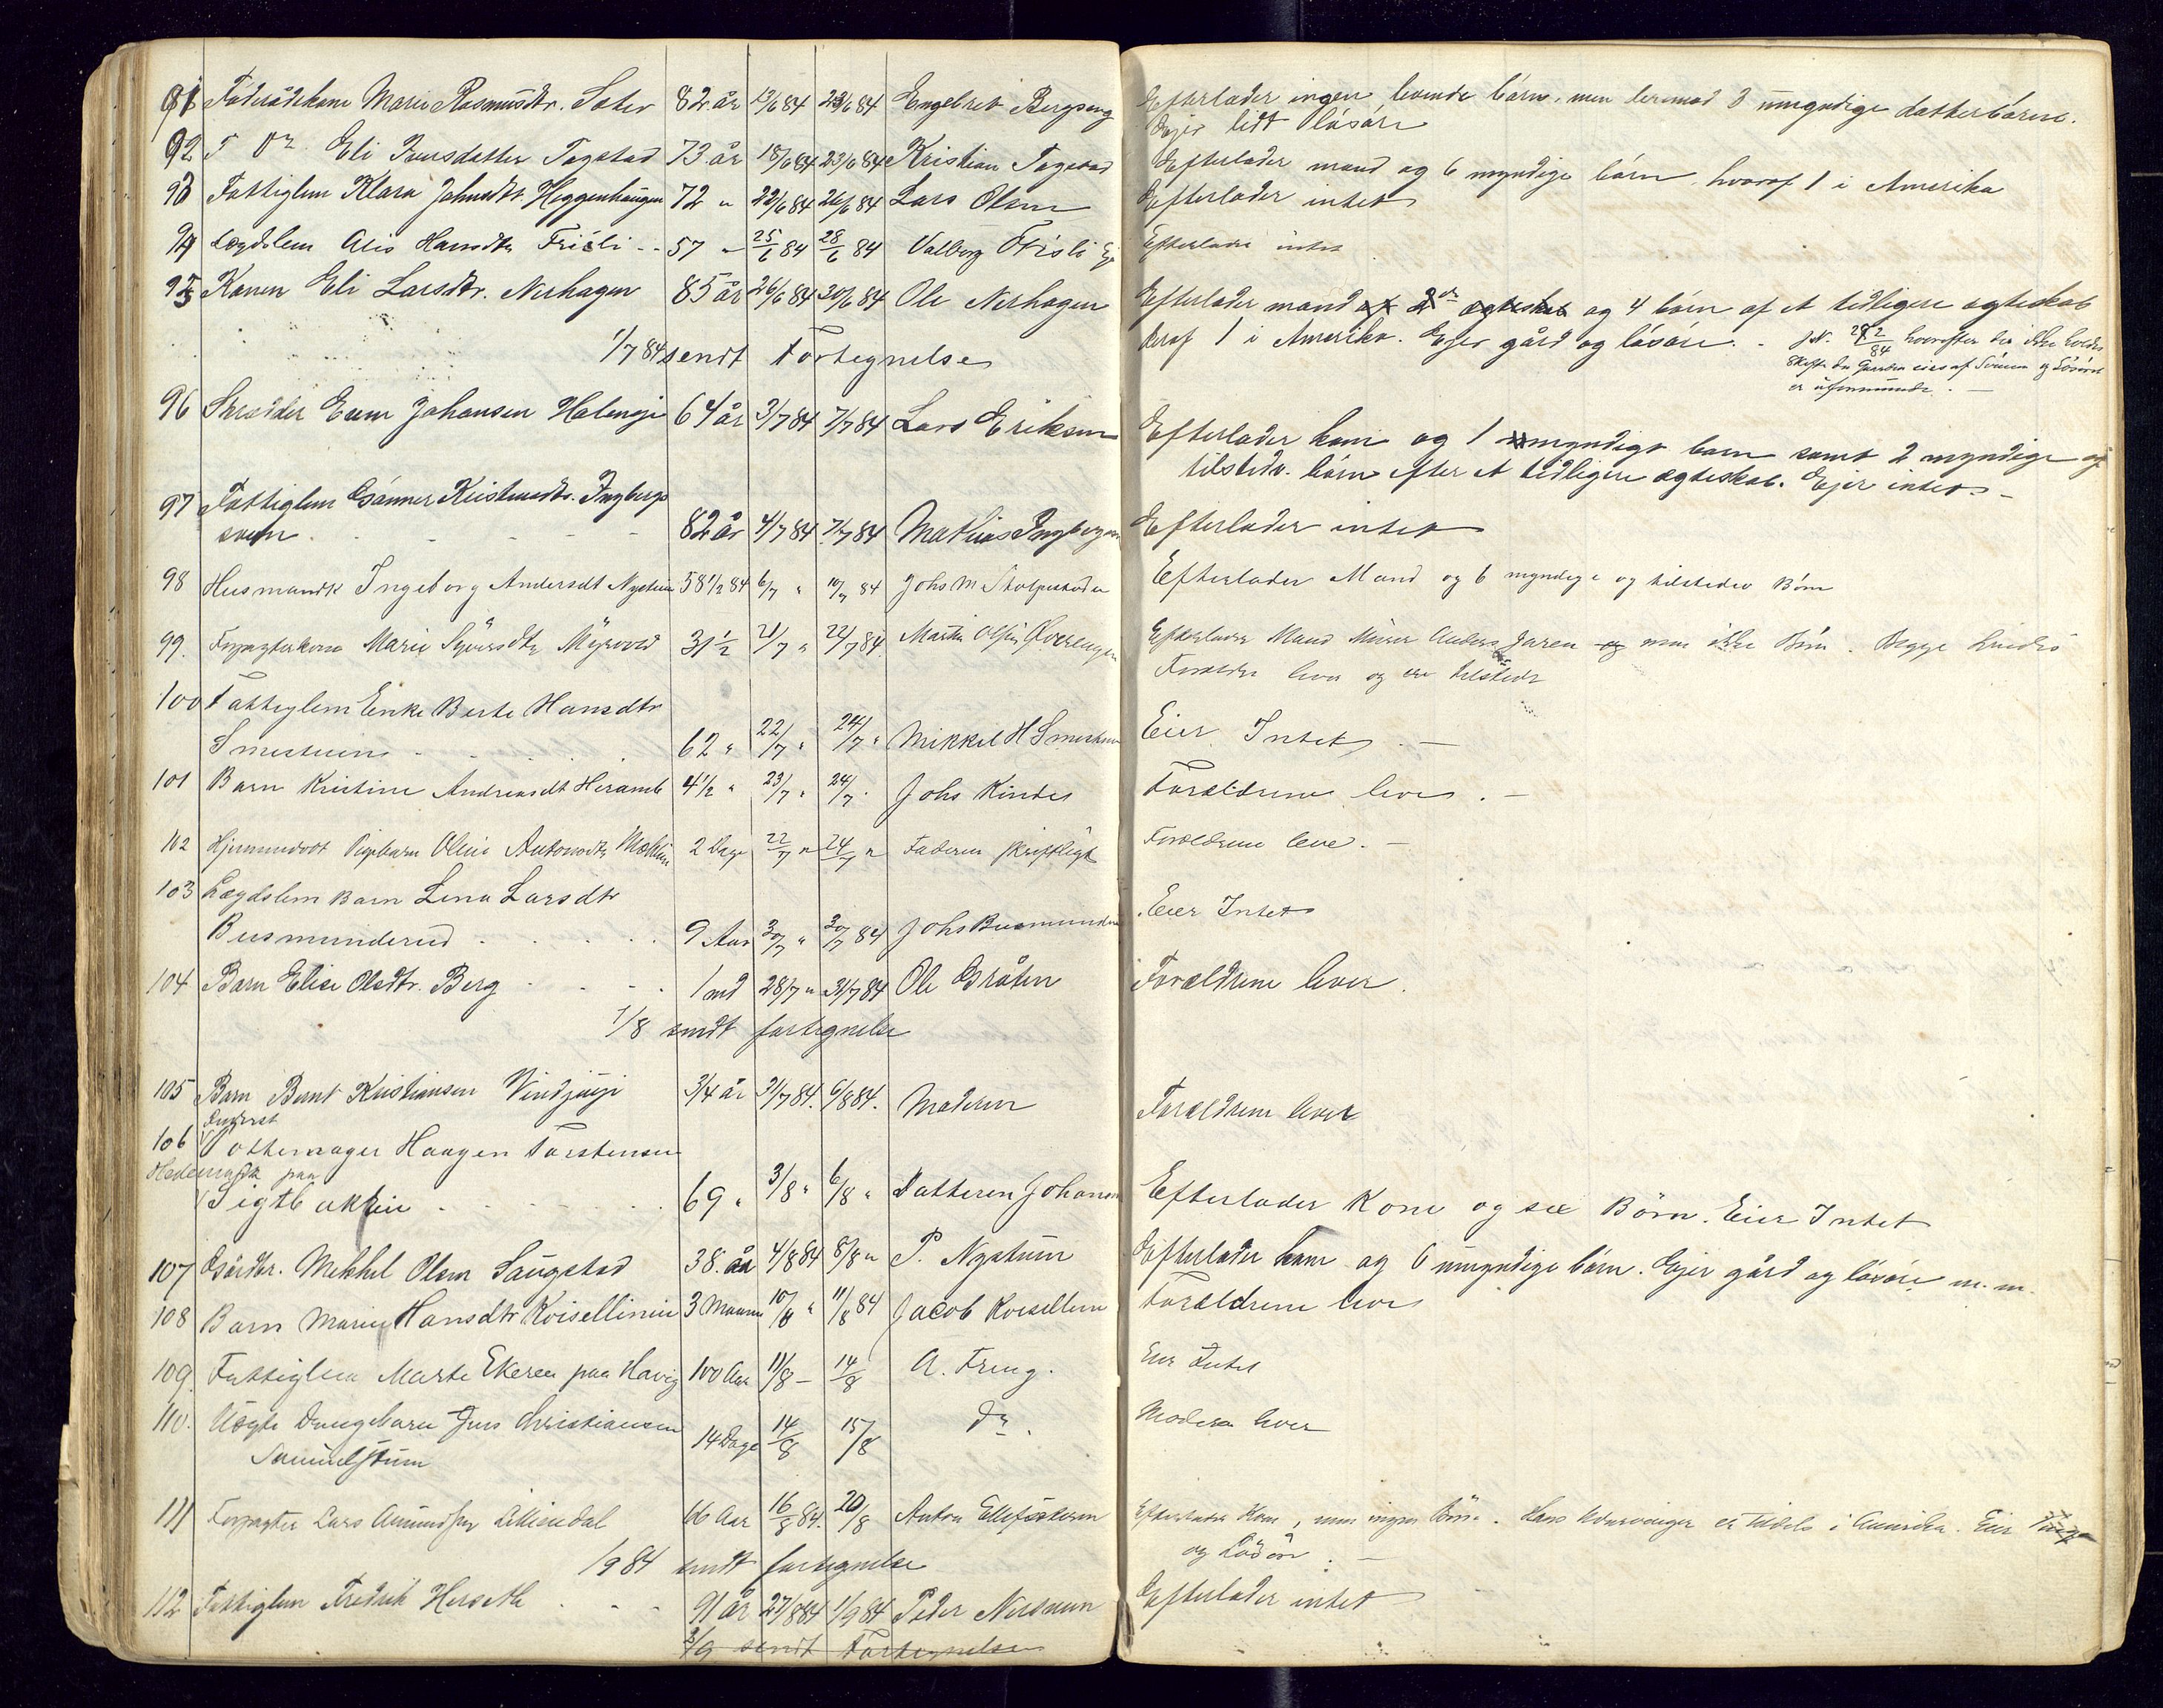 91 Føderådskone Marie Rasmusdtr. Sater 82 år 17/6 84 23/6 84 Engebret Bergseng Efterlader ingen levende børn, men derimod 3 umyndige datterbørn.
Ejer lidt løsøre
92 F do Eli Jensdatter Togstad 73 år 18/6 84 23/6 84 Kristian Togstad Efterlader mand og 6 myndige børn, hvoraf 1 i Amerika
93 Fattiglem Klara Johnsdtr. Heggenhaugen 72 " 22/6 84 26/6 84 Lars Olsen Efterlader intet
94 Lægdslem Hansdtr Frisli 57 " 25/6 84 28/6 84 Valborg Frisli Efterlader intet
95 Konen Eli Larsdtr. Nerhagen 85 år 26/6 84 30/6 84 Ole Nerhagen Efterlader mand og 4 børn af et tidligere ægteskab
1/7 84 sendt Fortegnelse deraf 1 i Amerika. Ejer gård og løsøre.
hvorefter der ikke holdes
Skifte da Gaarden eies af Sønnen og Løsøret
er
96 Skrædder Even Johansen Halengje 64 år 3/7 84 7/7 84 Lars Eriksen Efterlader kone og 1 myndigt barn samt 2 myndige og
tilstedv. børn efter et tidligere ægteskab. Ejer intet.
97 Fattiglem Gunner Kristensdtr. Ingbergs
sveen 82 år 4/7 84 7/7 84 Mathias Ingbergsv Efterlader intet
98 Husmandsk Ingeborg Andersdt Nystuen 58 1/2 84 6/7 " 10/7 84 Johs M Stolpestaden Efterlader Mand og 6 myndige og tilstedev Børn
99. Forpagterkone Marie Syversdtr Myrvold 31 1/2 21/7 " 22/7 84 Martin Olsen Øverengen Efterlader Mand Murer Anders Jaren men ikke Børn. Begge hendes
Forældre lever og ere tilstede
100 Fattiglem Enke Berte Hansdtr
Smestuen 62 " 22/7 " 24/7 " Mikkel H Smestuen Eier Intet. —
101 Barn Kristine Andreasdt Heramb 4 1/2 " 23/7 " 24/7 " Johs Kindes Forældrene lever. —
102 Hjemmedøbt Pigebarn Oline Antonsdtr Mæhlum 2 Dage 22/7 " 24/7 " Faderen skriftligt Forældrene leve. —
103 Lægdslem Barn Lina Larsdtr
Busmunderud 9 Aar 30/7 " 30/7 84 Johs Busmunderud Eier Intet
104 Barn Elise Olsdtr. Berg 1 md 28/7 " 31/7 84 Ole Bråten Forældrene lever.
1/8 sendt fortegnelse
105 Barn Bernt Kristiansen Vindjuje 3/4 år 31/7 84. 6/8 84. Moderen Forældrene lever
106 Pottemager Haagen Torstensen
Hedemark paa
Sigtbakken 69 " 3/8 " 6/8 " Datteren Johanne Efterlader Kone og sex Børn. Eier Intet
107 Gårdbr. Mikkel Olsen Saugstad 38. år 4/8 84 8/8 " P. Nystuen Efterlader kone og 6 umyndige børn. Ejer gård og løsøre m.m.
108 Barn Marie Hansdtr Koisellinie 3 Maaneder 10/8 " 11/8 84 Jacob Koisellinie Forældrene lever
109. Fattiglem Marte Ekeren paa Hovig 100 Aar 11/8 — 14/8 A. Freng. Eier Intet
110. Uægte Drengebarn Jens Christiansen
Samuelstuen 14 Dage 14/8 15/8 do. Moderen lever
111 Forpagter Lars Amundsen 66 Aar 16/8 84. 20/8 Anton Ellefsstuen Efterlader Kone, men ingen Børn. Hans Udarvinger er tildels i Amerika. Eier Penge
1/9 84 sendt fortegnelse og Løsøre. —
112 Fattiglem Fredrik Herseth 91 år 27/8 84 1/9 84 Peder Nersveen Efterlader intet
2/9 sendt Fortegnelse